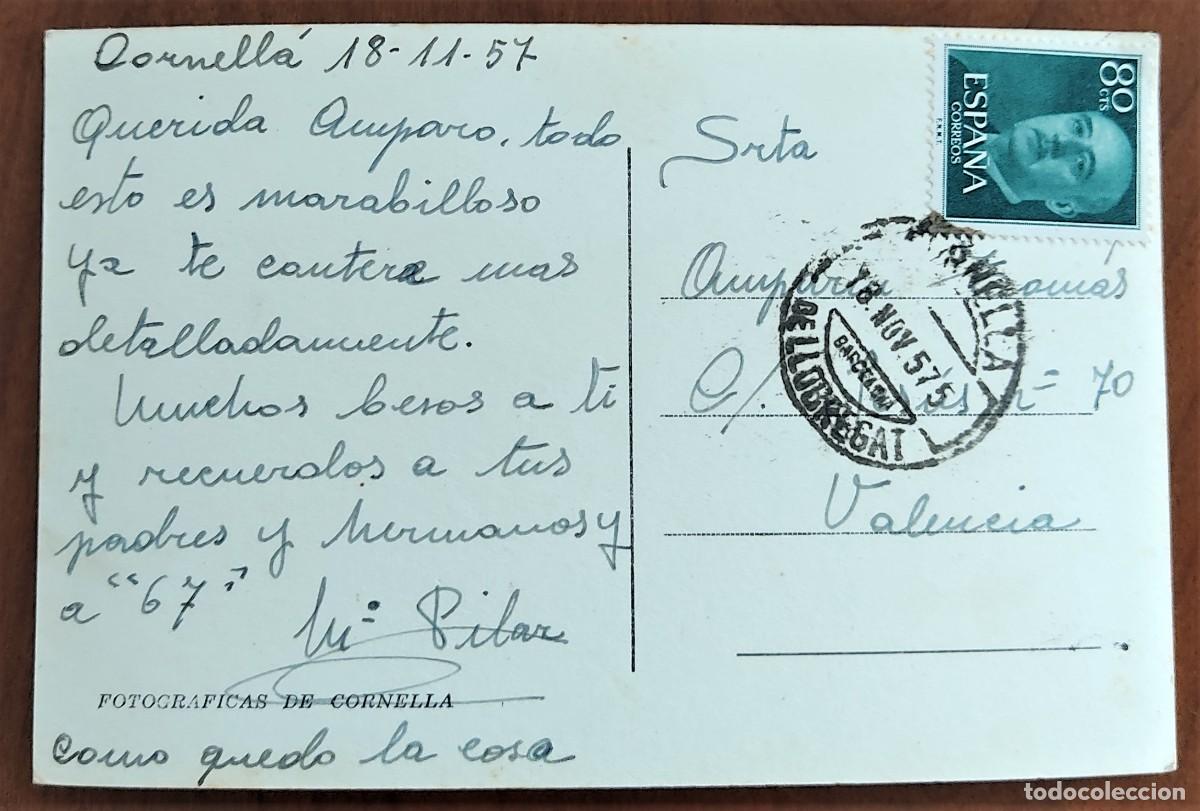 Cornellá 18-11-57
Querida Amparo, todo
esto es marabilloso
ya te contere mas
detalladamente.
Muchos besos a ti
y recuerdos a tus
padres y hermanos y
a "67"
Mª Pilar
FOTOGRAFICAS DE CORNELLA
como quedo la cosa
80
CTS
ESPAÑA
CORREOS
F.N.M.T.
Srta
Amparo Tomás
C/. nº 70
Valencia
CORNELLA
18.NOV.57 5
BARCELONA
DE LLOBREGAT
todocoleccion